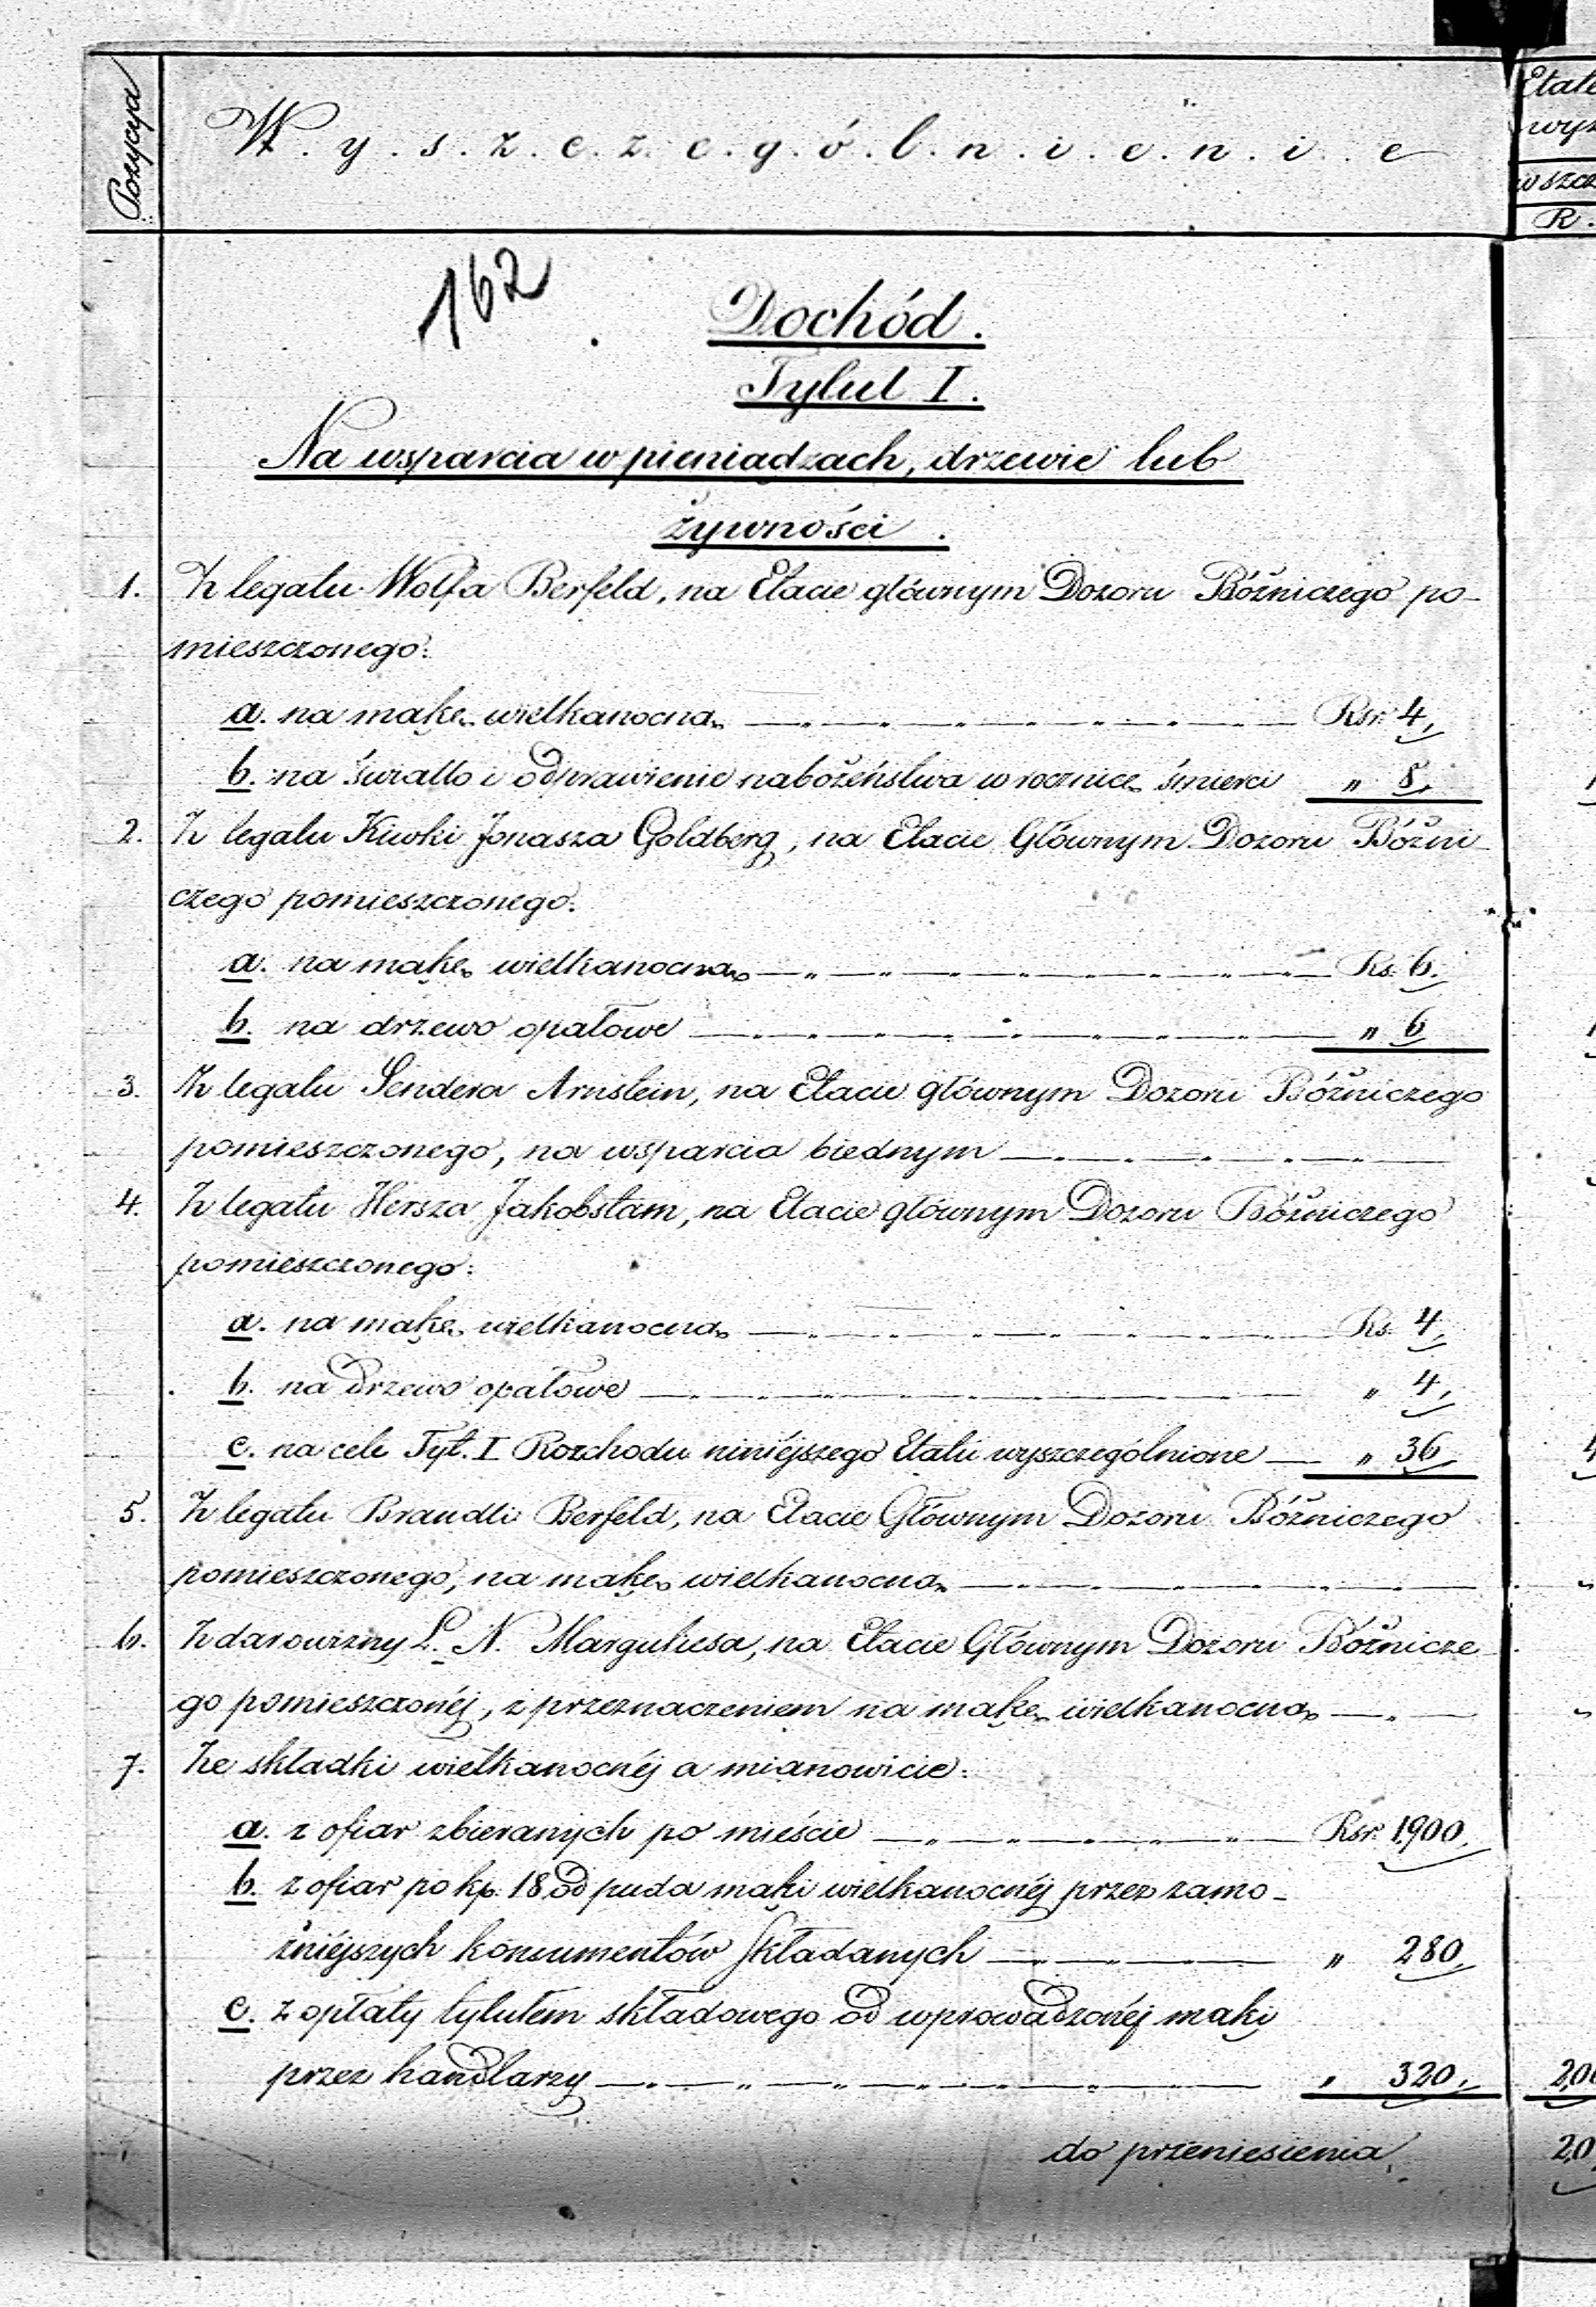 Pozycya
W.y.s.z.c.z.e.g.ó.l.n.i.e.n.i.e
Etale
wyż
w szcz
R.
162
Dochód.
Tytuł I.
Na wsparcia w pieniądzach, drzewie lub
żywności.
1. Z legatu Wolfa Berfeld, na Etacie głównym Dozoru Bóźniczego po-
mieszczonego:
a. na mąkę wielkanocną Rsr. 4,
b. na światło i odprawienie nabożeństwa w rocznicę śmierci " 8,
2. Z legatu Kiwki Jonasza Goldberg, na Etacie Głównym Dozoru Bóźni-
czego pomieszczonego.
a. na mąkę wielkanocną Rs. 6.
b. na drzewo opałowe " 6
3. Z legatu Sendera Arnstein, na Etacie głównym Dozoru Bóźniczego
pomieszczonego, na wsparcia biednym
4. Z legatu Hersza Jakobstam, na Etacie głównym Dozoru Bóźniczego
pomieszczonego:
a. na mąkę wielkanocną Rs. 4,
b. na drzewo opałowe " 4,
c. na cele Tyt. I Rozchodu niniéjszego Etatu wyszczególnione " 36
5. Z legatu Brandli Berfeld, na Etacie Głównym Dozoru Bóźniczego
pomieszczonego, na mąkę wielkanocną
6. Z darowizny L. N. Marguliesa, na Etacie Głównym Dozoru Bóźnicze-
go pomieszczonéj, z przeznaczeniem na mąkę wielkanocną
7. Ze składki wielkanocnéj a mianowicie:
a. z ofiar zbieranych po mieście Rsr. 1900,
b. z ofiar po kp. 18 od puda mąki wielkanocnéj przez zamo-
żniéjszych konsumentów składanych " 280,
c. z opłaty tytułem składowego od wprowadzonéj mąki
przez handlarzy " 320, 2,0
do przeniesienia, 2,0